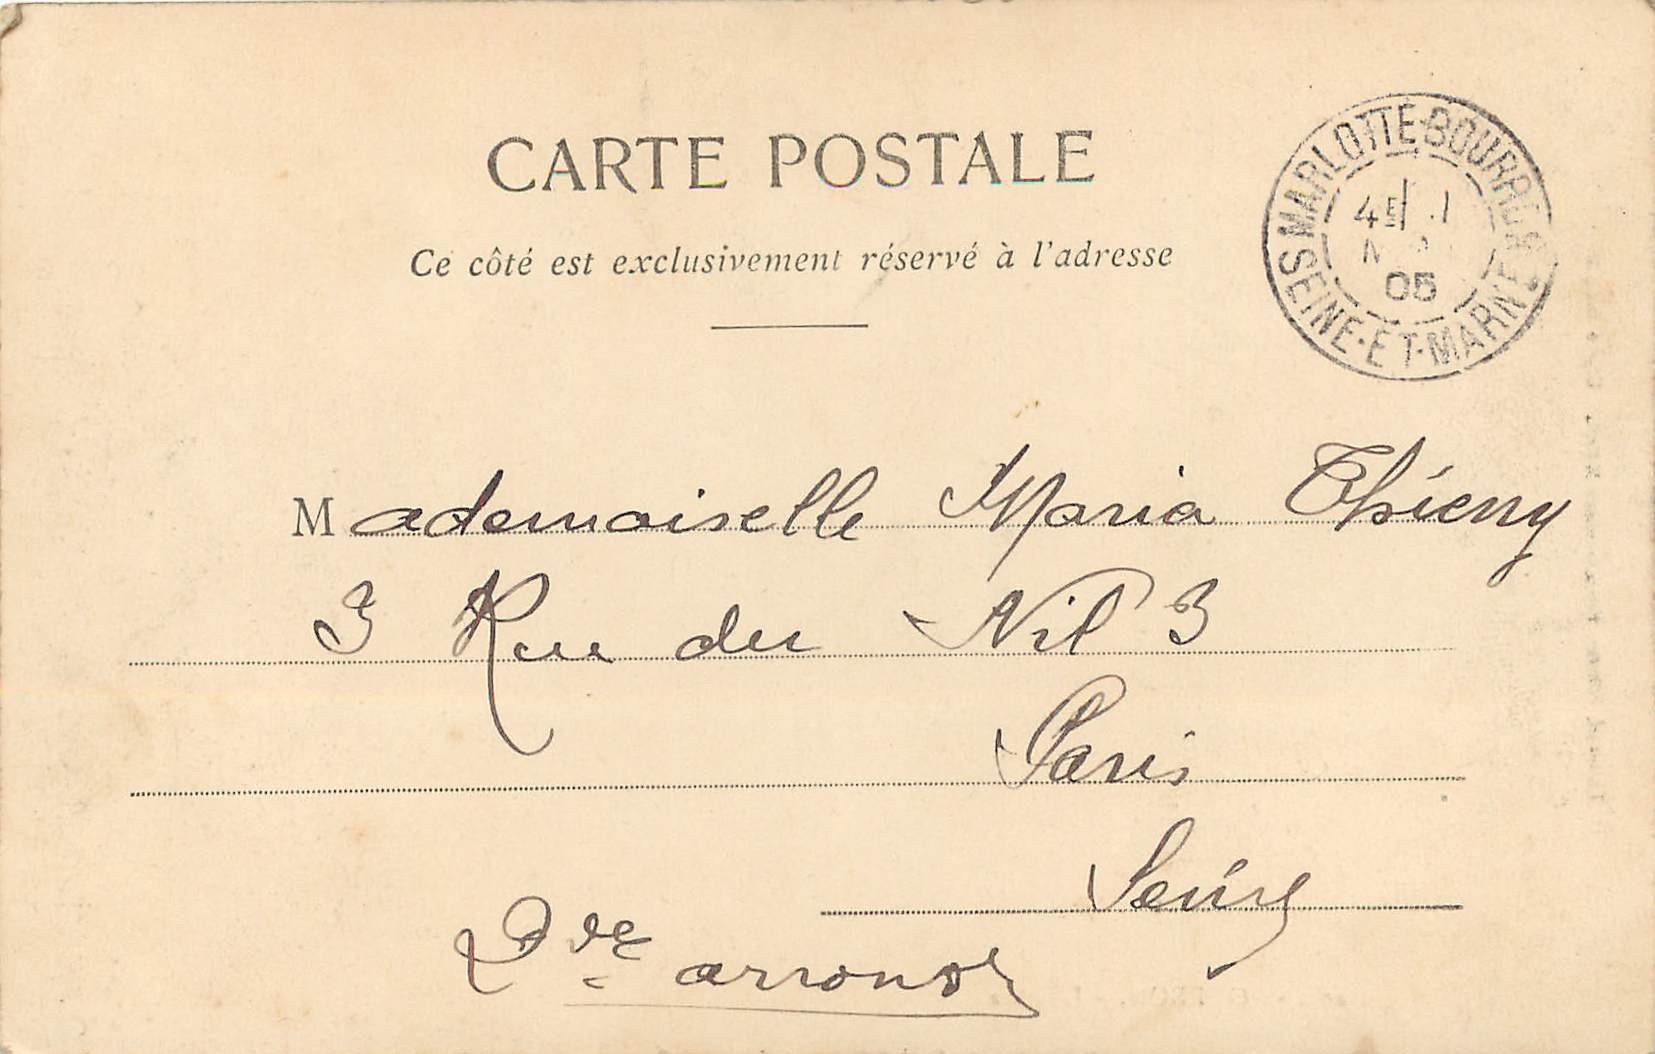 CARTE POSTALE
Ce côté est exclusivement réservé à l'adresse
MARLOTTE-BOURRON
4E
05
SEINE-ET-MARNE
Mademoiselle Maria Thiéry
3 Rue du Nil 3
Paris
Seine
arrond